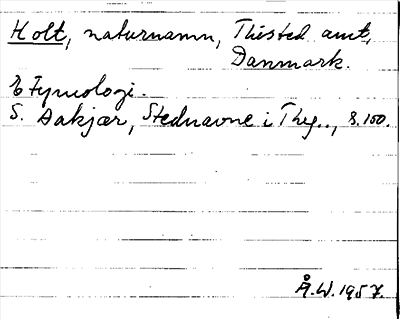 Holt, naturnamn, Thisted amt,
Danmark.
Etymologi.
S. Aakjær, Stednavne i Thy.., s. 100.
Å.W. 1957.